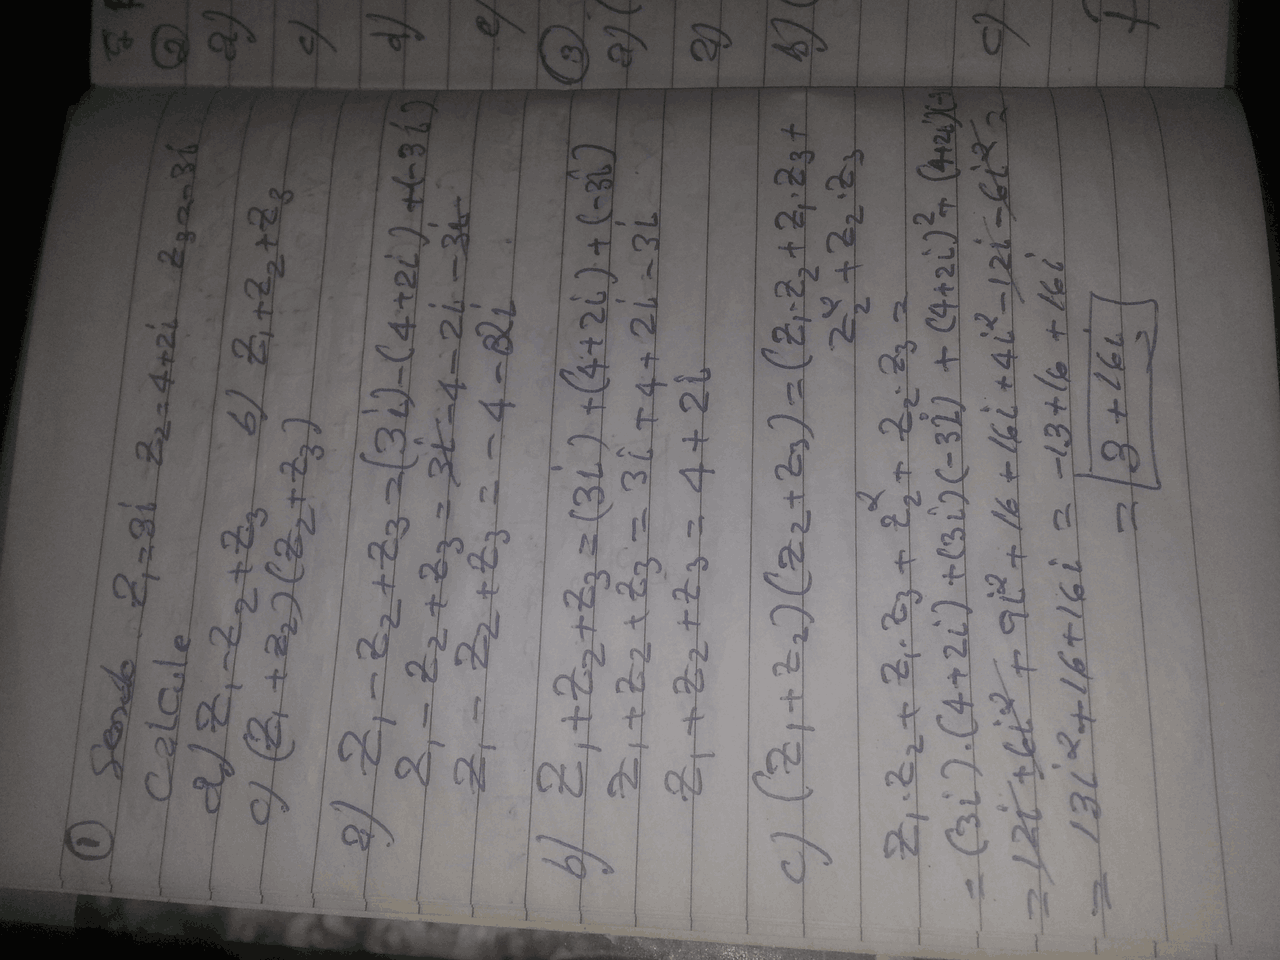 ① Sendo z₁=3i z₂=4+2i z₃=-3i
Calcule
a) z₁-z₂+z₃ b) z₁+z₂+z₃
c) (z₁+z₂)(z₂+z₃)
a) z₁-z₂+z₃=(3i)-(4+2i)+(-3i)
z₁-z₂+z₃=3i-4-2i-3i
z₁-z₂+z₃=-4-2i
b) z₁+z₂+z₃=(3i)+(4+2i)+(-3i)
z₁+z₂+z₃=3i+4+2i-3i
z₁+z₂+z₃=4+2i
c) (z₁+z₂)(z₂+z₃)=(z₁.z₂+z₁.z₃+
z₂²+z₂.z₃
z₁.z₂+z₁.z₃+z₂²+z₂.z₃=
=(3i).(4+2i)+(3i)(-3i)+(4+2i)²+(4+2i)(-
=12i+6i²+9i²+16+16i+4i²-12i-6i²=
=13i²+16+16i=-13+16+16i
=3+16i
②
a)
c)
d)
e)
③
a) (
a)
b) (
c)